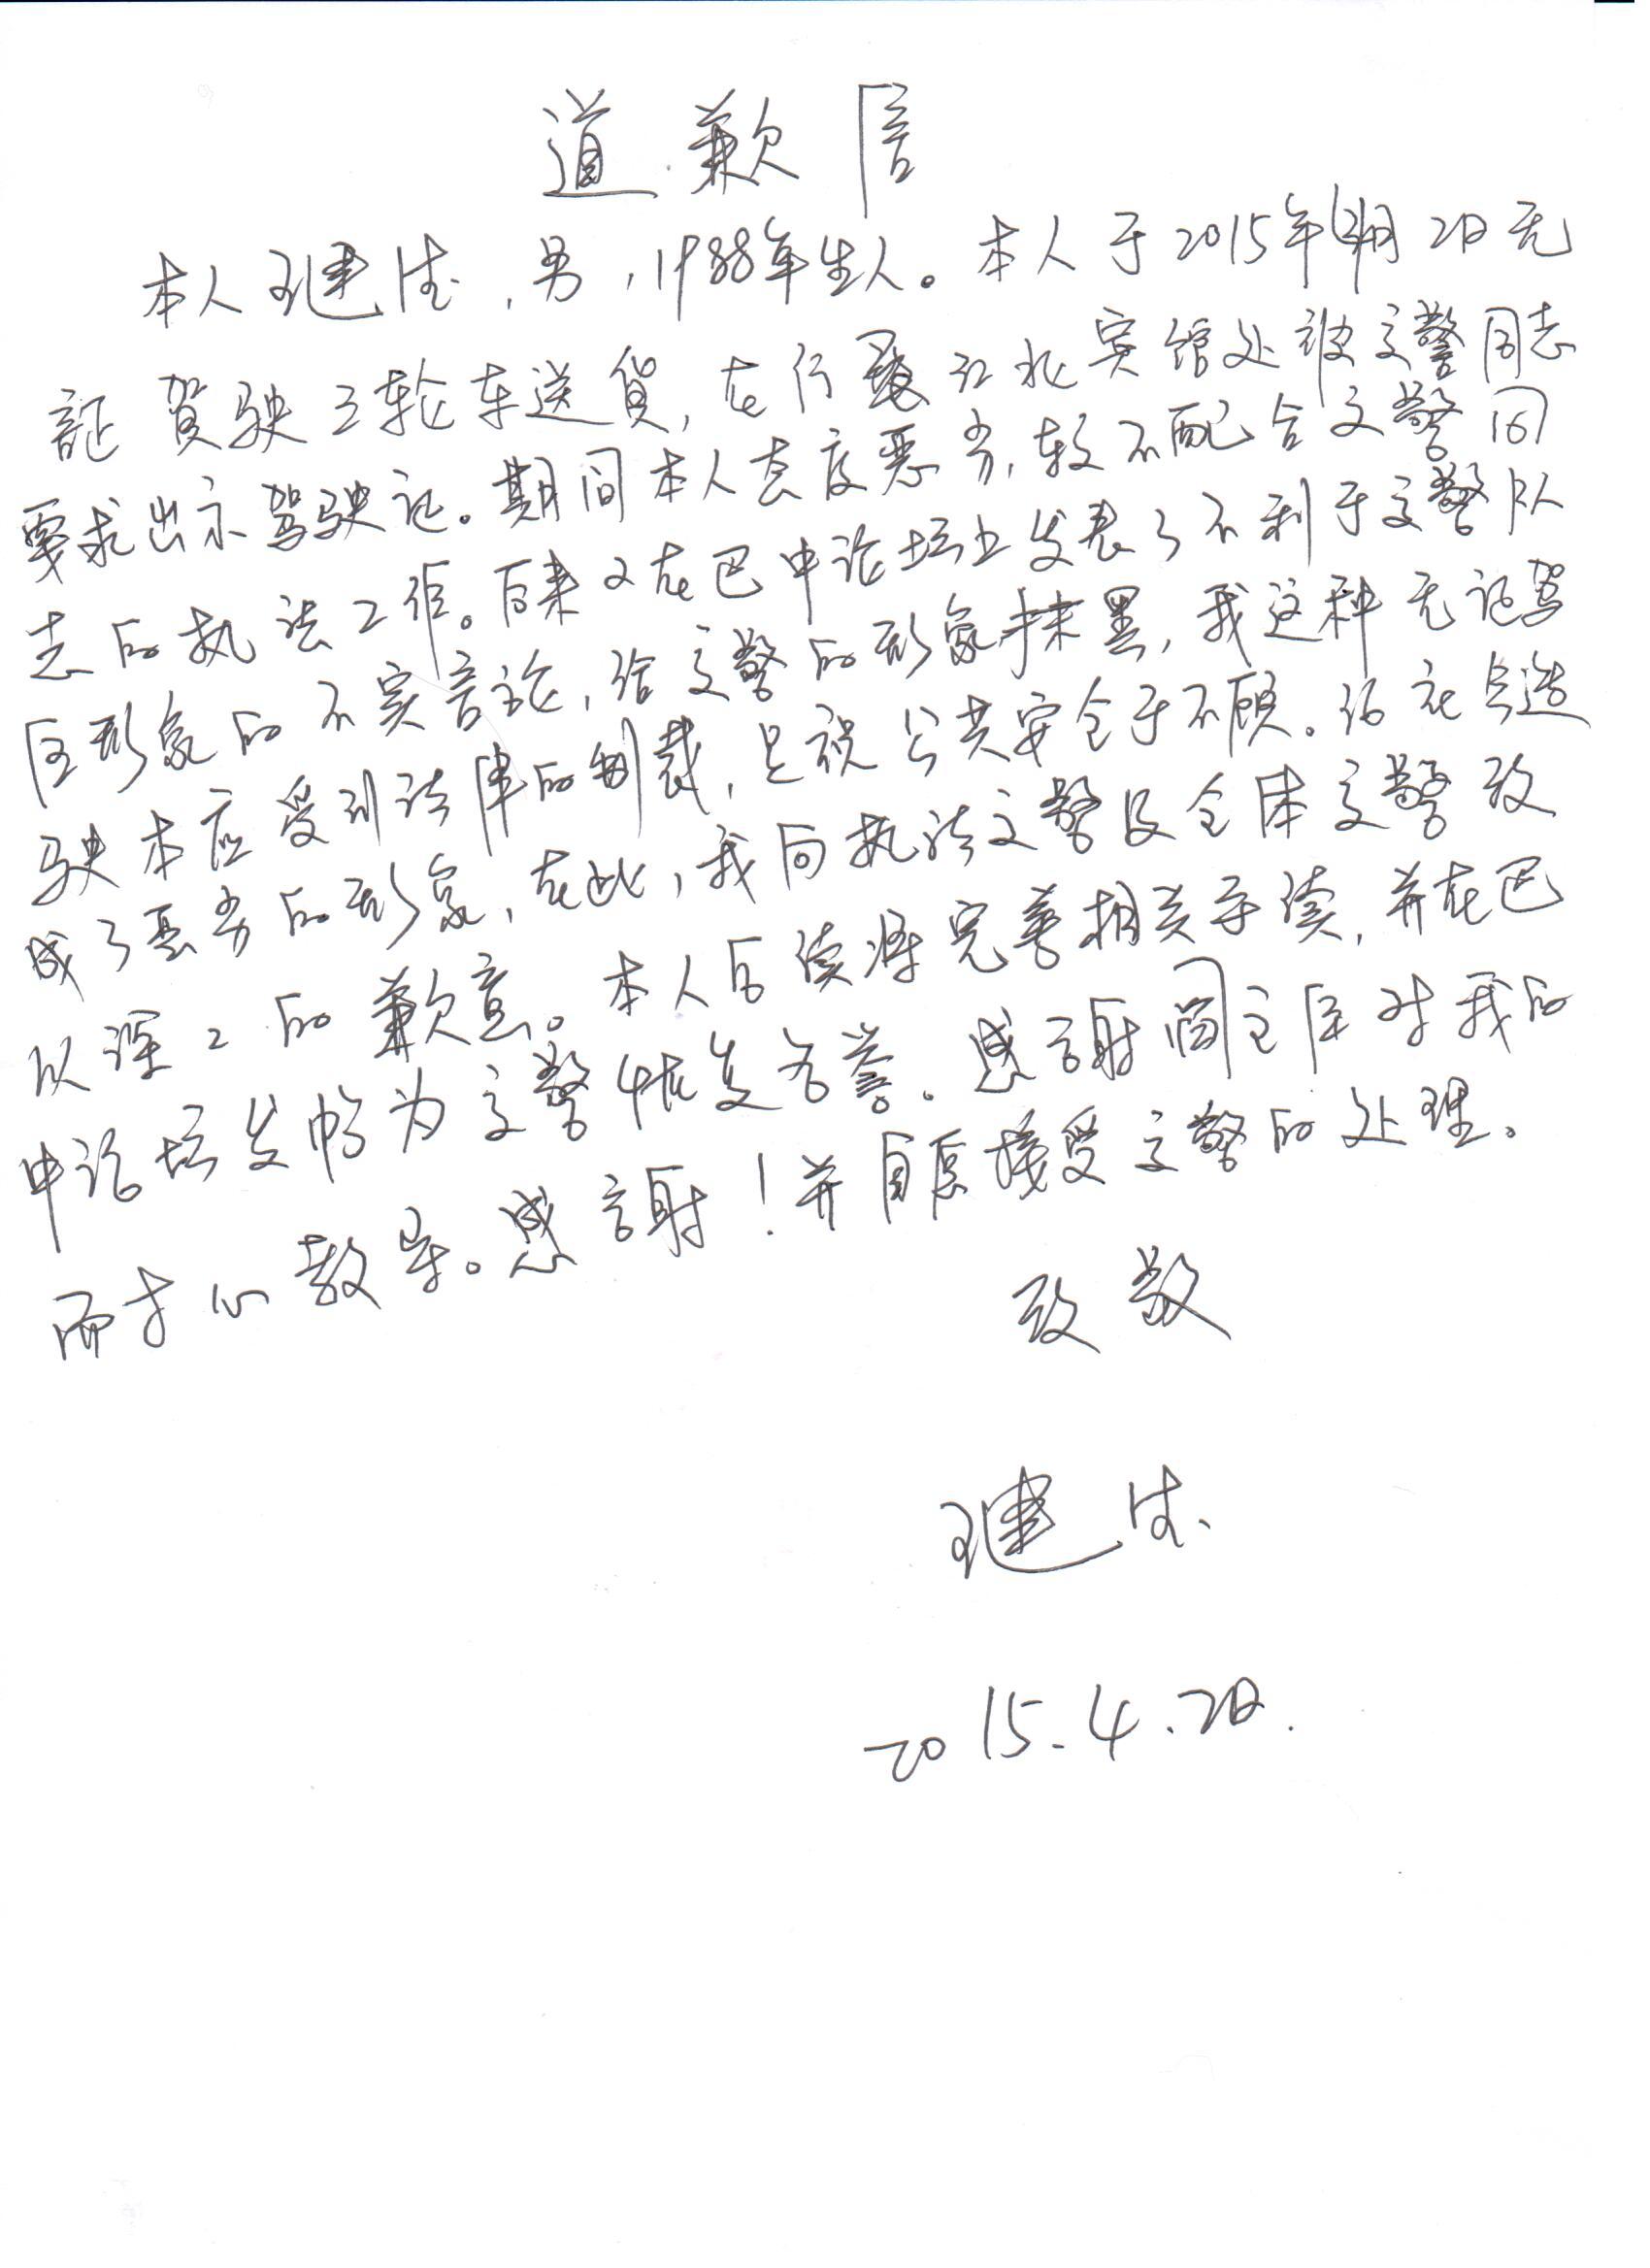 道歉信
本人王建法，男，1988年生人。本人于2015年月2日无
証駕驶三轮车送货，在行至江北宾馆处被交警同志
要求出示驾驶证。期间本人态度恶劣，较不配合交警同
志的执法工作。后来又在巴中论坛上发表了不利于交警队
伍形象的不实言论，给交警的形象抹黑，我这种无证驾
驶本应受到法律的制裁，是视公共安全于不顾。给社会造
成了恶劣的形象，在此，我向执法交警及全体交警致
以深二的歉意。本人后续将完善相关手续，并在巴
中论坛发帖为交警恢复名誉。感謝阎主任对我的
而才心教导。感謝！并自愿接受交警的处理。
致敬
王建法
2015.4.2日.